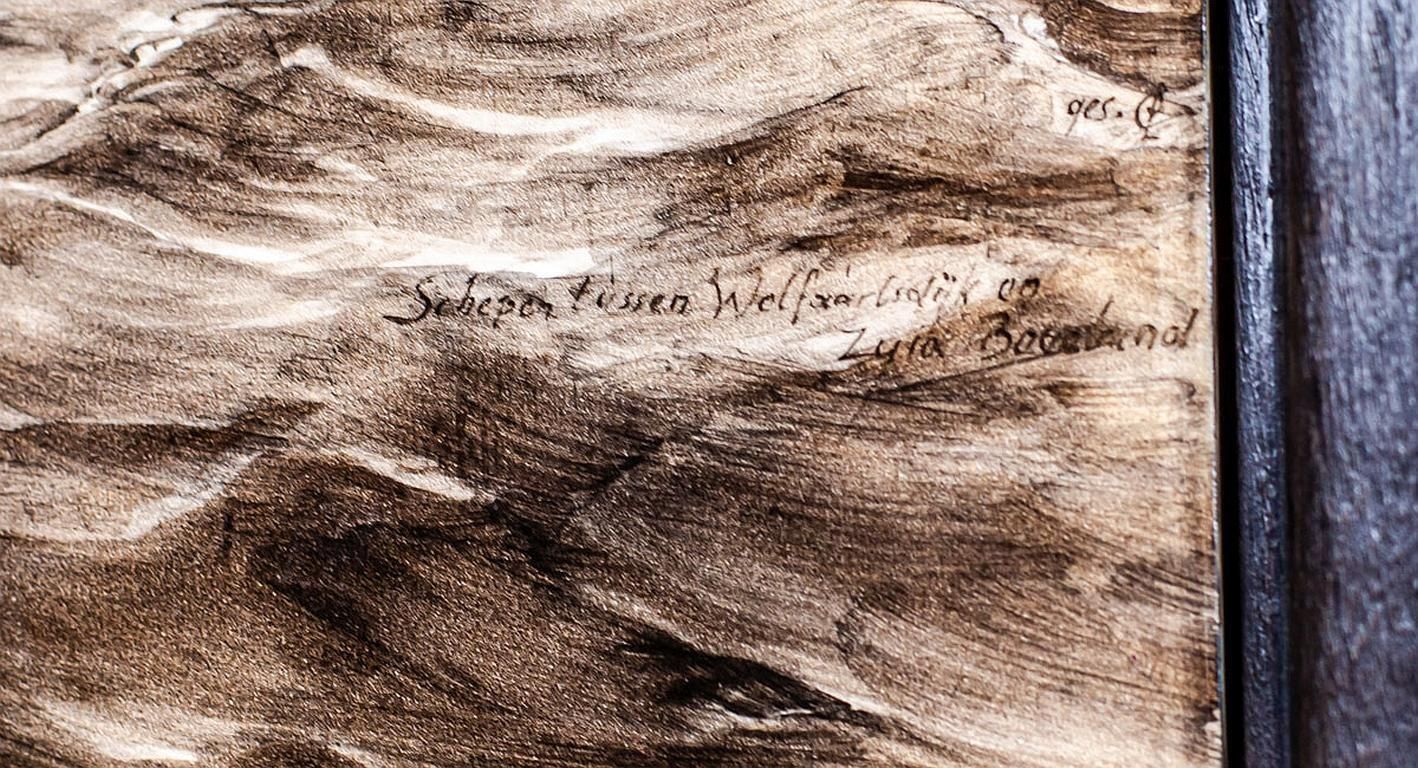 ges.
Schepen tussen Wolfaartsdijk en
Zuid Beveland